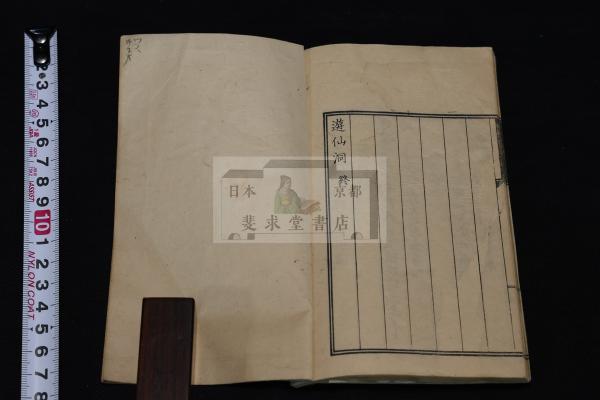 遊仙洞 終
日本 京都
斐求堂書店
2
3
4
5
6
7
8
9
10
1
2
3
4
5
6
7
8
NYLON COAT